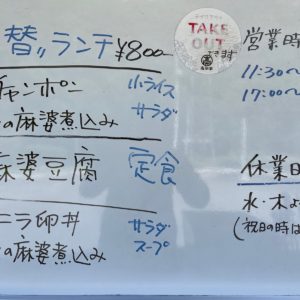 替りランチ ¥800
チャンポン 小ライス
の麻婆煮込み サラダ
麻婆豆腐 定食
ニラ卵丼 サラダ
の麻婆煮込み スープ
TAKE
OUT
できます
営業時
11:30〜
17:00〜
休業日
水・木よ
(祝日の時は